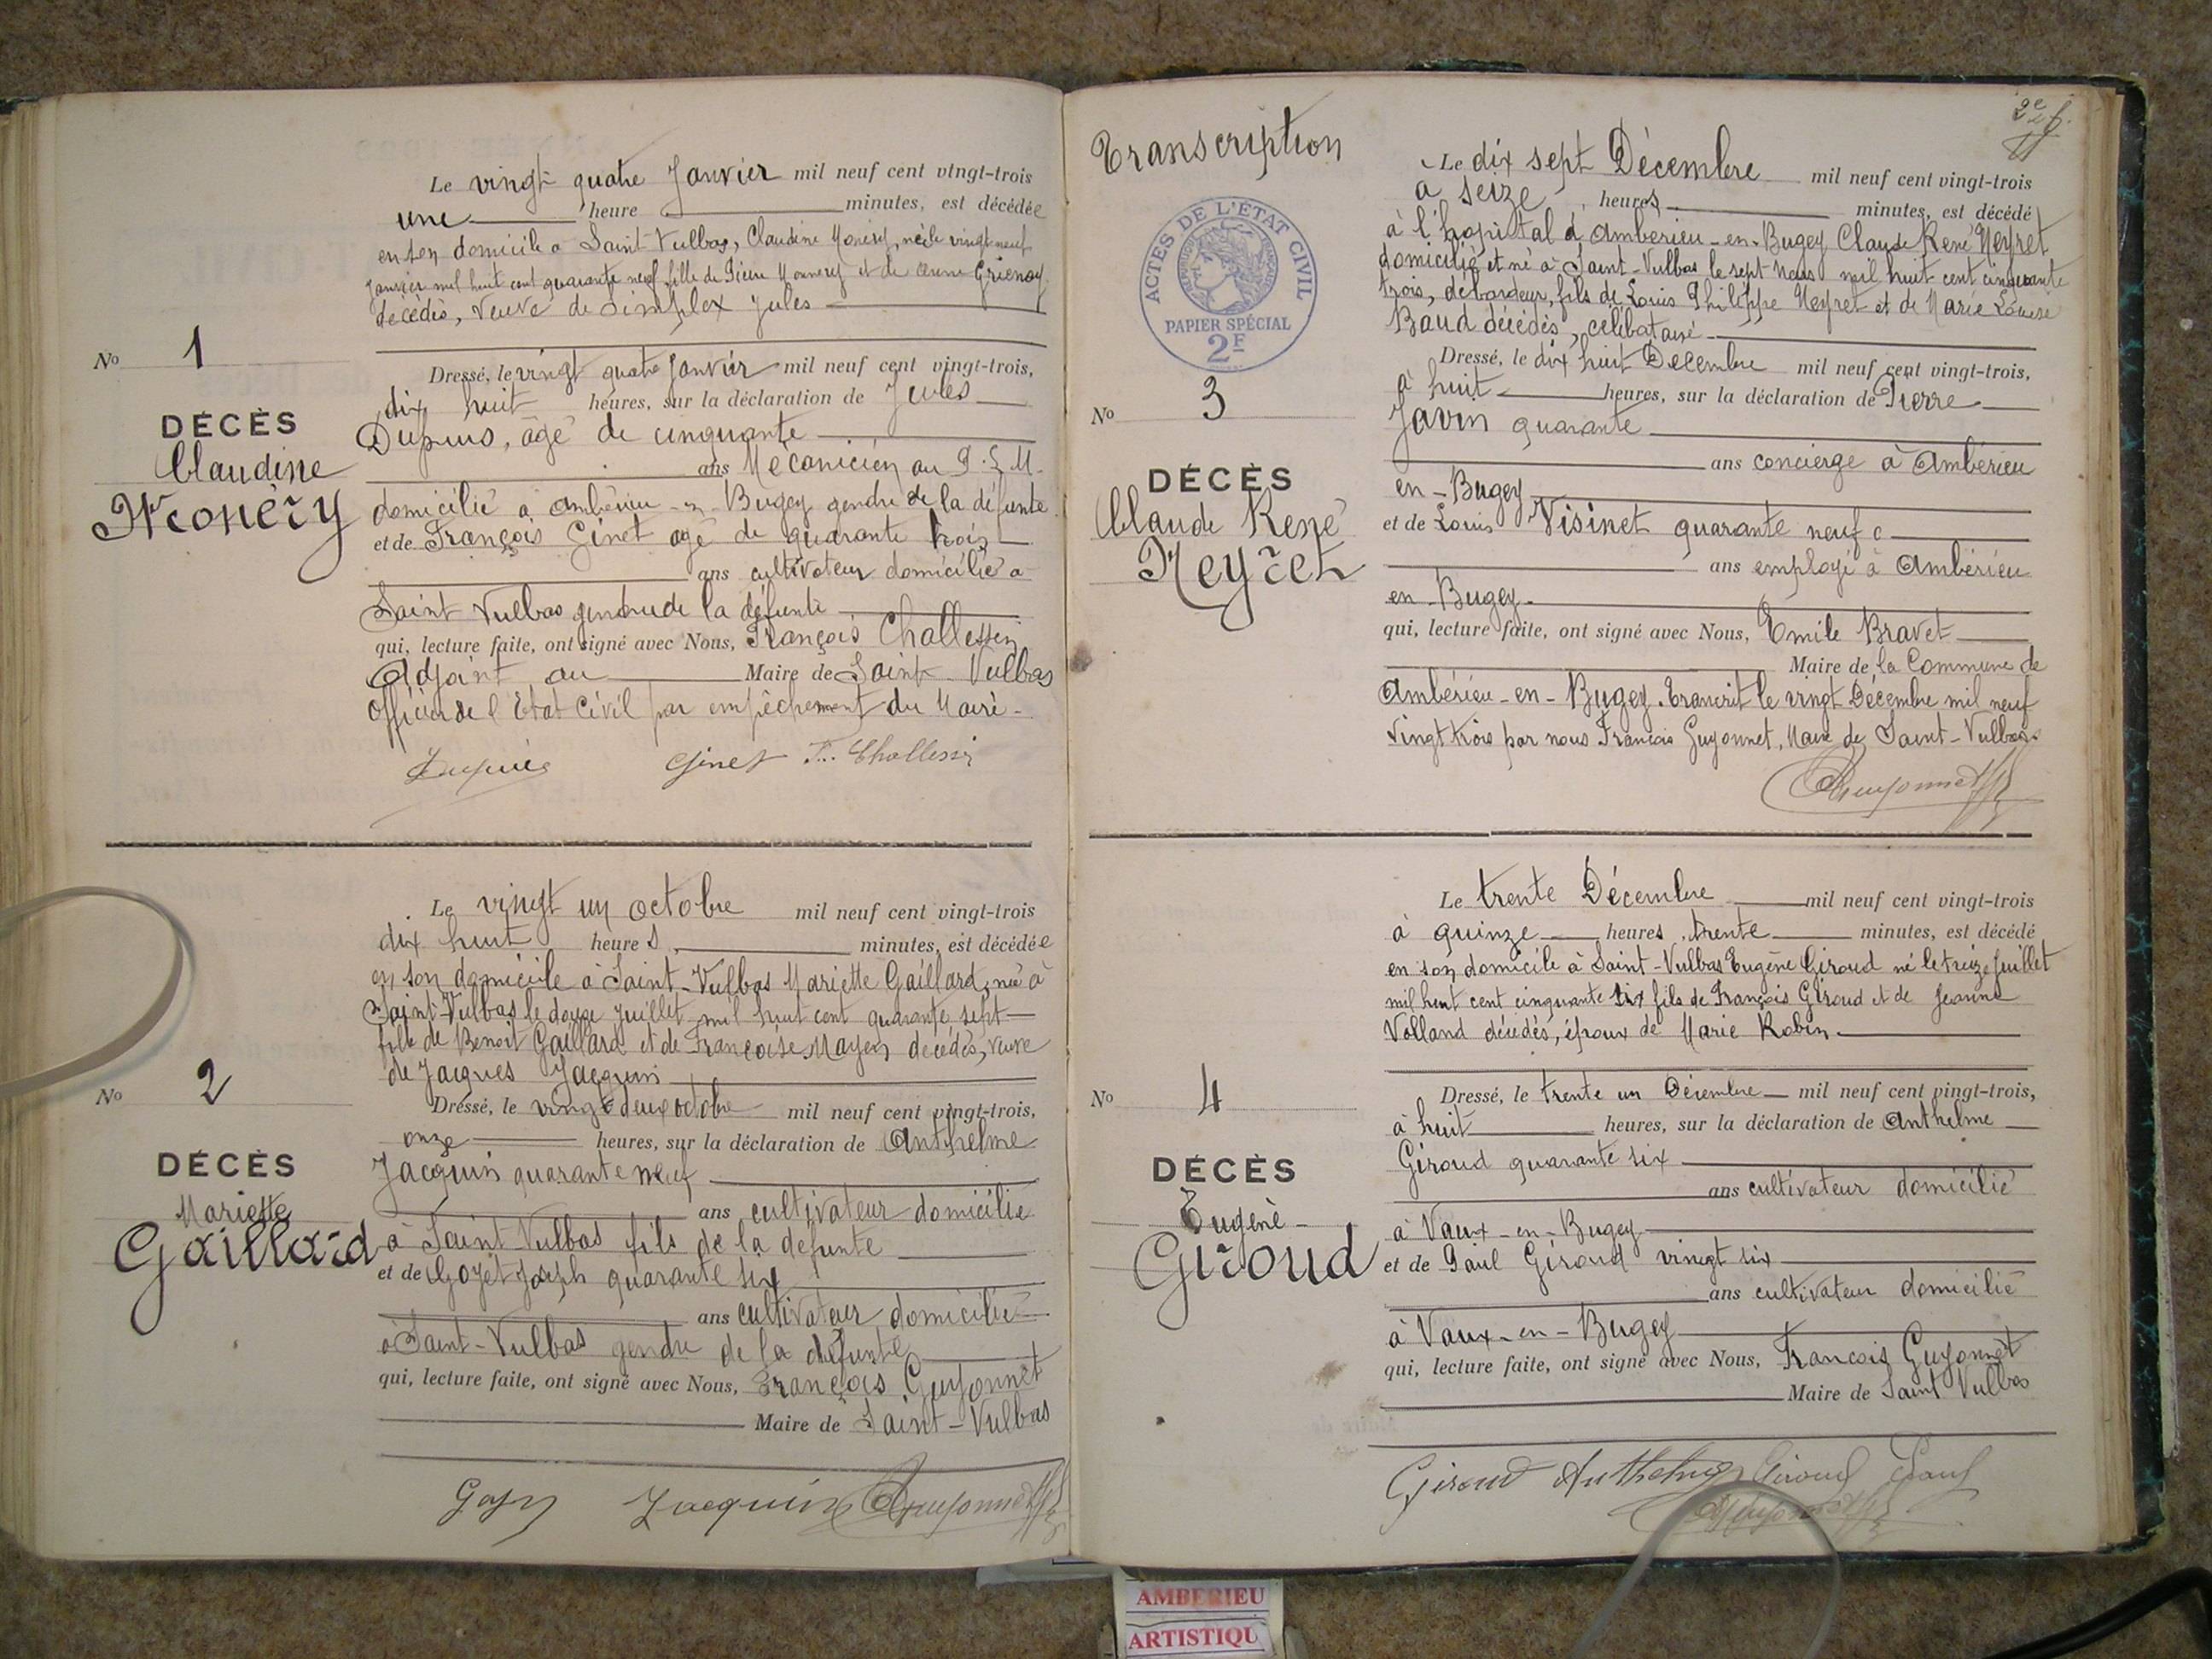 Le vingt quatre Janvier mil neuf cent vingt-trois
une heure minutes, est décédée
en son domicile à Saint-Vulbas, Claudine Monery, née le vingt neuf
Janvier mil huit cent quarante neuf fille de Pierre Monnery et de Grienay
décédés, veuve de Simplex Jules
No 1
DÉCÈS
Claudine
Monery
Dressé, le vingt quatre Janvier mil neuf cent vingt-trois,
dix huit heures, sur la déclaration de Jules
Dupuis, âgé de cinquante
ans Mécanicien au P.L.M.
domicilié à Ambérieu-en-Bugey gendre de la défunte
et de François Ginet agé de quarante trois
ans cultivateur domicilié à
Saint Vulbas gendre de la défunte
qui, lecture faite, ont signé avec Nous, François
Adjoint au Maire de Saint-Vulbas
Officier de l'Etat Civil par empêchement du Maire
Dupuis Ginet
Le vingt un octobre mil neuf cent vingt-trois
dix huit heures, minutes, est décédée
en son domicile à Saint-Vulbas Mariette Gaillard, née à
Saint-Vulbas le douze Juillet mil huit cent quarante sept
fille de Benoit Gaillard et de Françoise décédés, veuve
de Jacques Jacquin
No 2
DÉCÈS
Mariette
Gaillard
Dressé, le vingt deux octobre mil neuf cent vingt-trois,
onze heures, sur la déclaration de Anthelme
Jacquin quarante neuf
ans cultivateur domicilié
à Saint Vulbas fils de la défunte
et de Goyet Joseph quarante six
ans cultivateur domicilié
à Saint-Vulbas gendre de la défunte
qui, lecture faite, ont signé avec Nous, François Guyonnet
Maire de Saint-Vulbas
Jacquin Guyonnet
Transcription
ACTES DE L'ETAT CIVIL
REPUBLIQUE FRANÇAISE
PAPIER SPÉCIAL
2F
Le dix sept Décembre mil neuf cent vingt-trois
à seize heures minutes, est décédé
à l'hopital d'Ambérieu-en-Bugey Claude René Neyret
domicilié et né à Saint-Vulbas le sept Mars mil huit cent cinquante
trois, débardeur, fils de Louis Philippe Neyret et de Marie Louise
Baud décédés, célibataire
No 3
DÉCÈS
Claude René
Neyret
Dressé, le dix huit Décembre mil neuf cent vingt-trois,
à huit heures, sur la déclaration de Pierre
Javin quarante
ans concierge à Ambérieu
en-Bugey
et de Louis Visinet quarante neuf
ans employé à Ambérieu
en-Bugey
qui, lecture faite, ont signé avec Nous, Emile Bravet
Maire de la Commune de
Ambérieu-en-Bugey. Transcrit le vingt Décembre mil neuf
vingt trois par nous François Guyonnet, Maire de Saint-Vulbas
Guyonnet
Le trente Décembre mil neuf cent vingt-trois
à quinze heures, trente minutes, est décédé
en son domicile à Saint-Vulbas Eugène Giroud né le treize Juillet
mil huit cent cinquante six fils de François Giroud et de Jeanne
Volland décédés, époux de Marie Robin
No 4
DÉCÈS
Eugène
Giroud
Dressé, le trente un Décembre mil neuf cent vingt-trois,
à huit heures, sur la déclaration de Anthelme
Giroud quarante six
ans cultivateur domicilié
à Vaux-en-Bugey
et de Paul Giroud vingt six
ans cultivateur domicilié
à Vaux-en-Bugey
qui, lecture faite, ont signé avec Nous, François Guyonnet
Maire de Saint Vulbas
Giroud Anthelme Giroud Paul
Guyonnet
AMBERIEU
ARTISTIQU